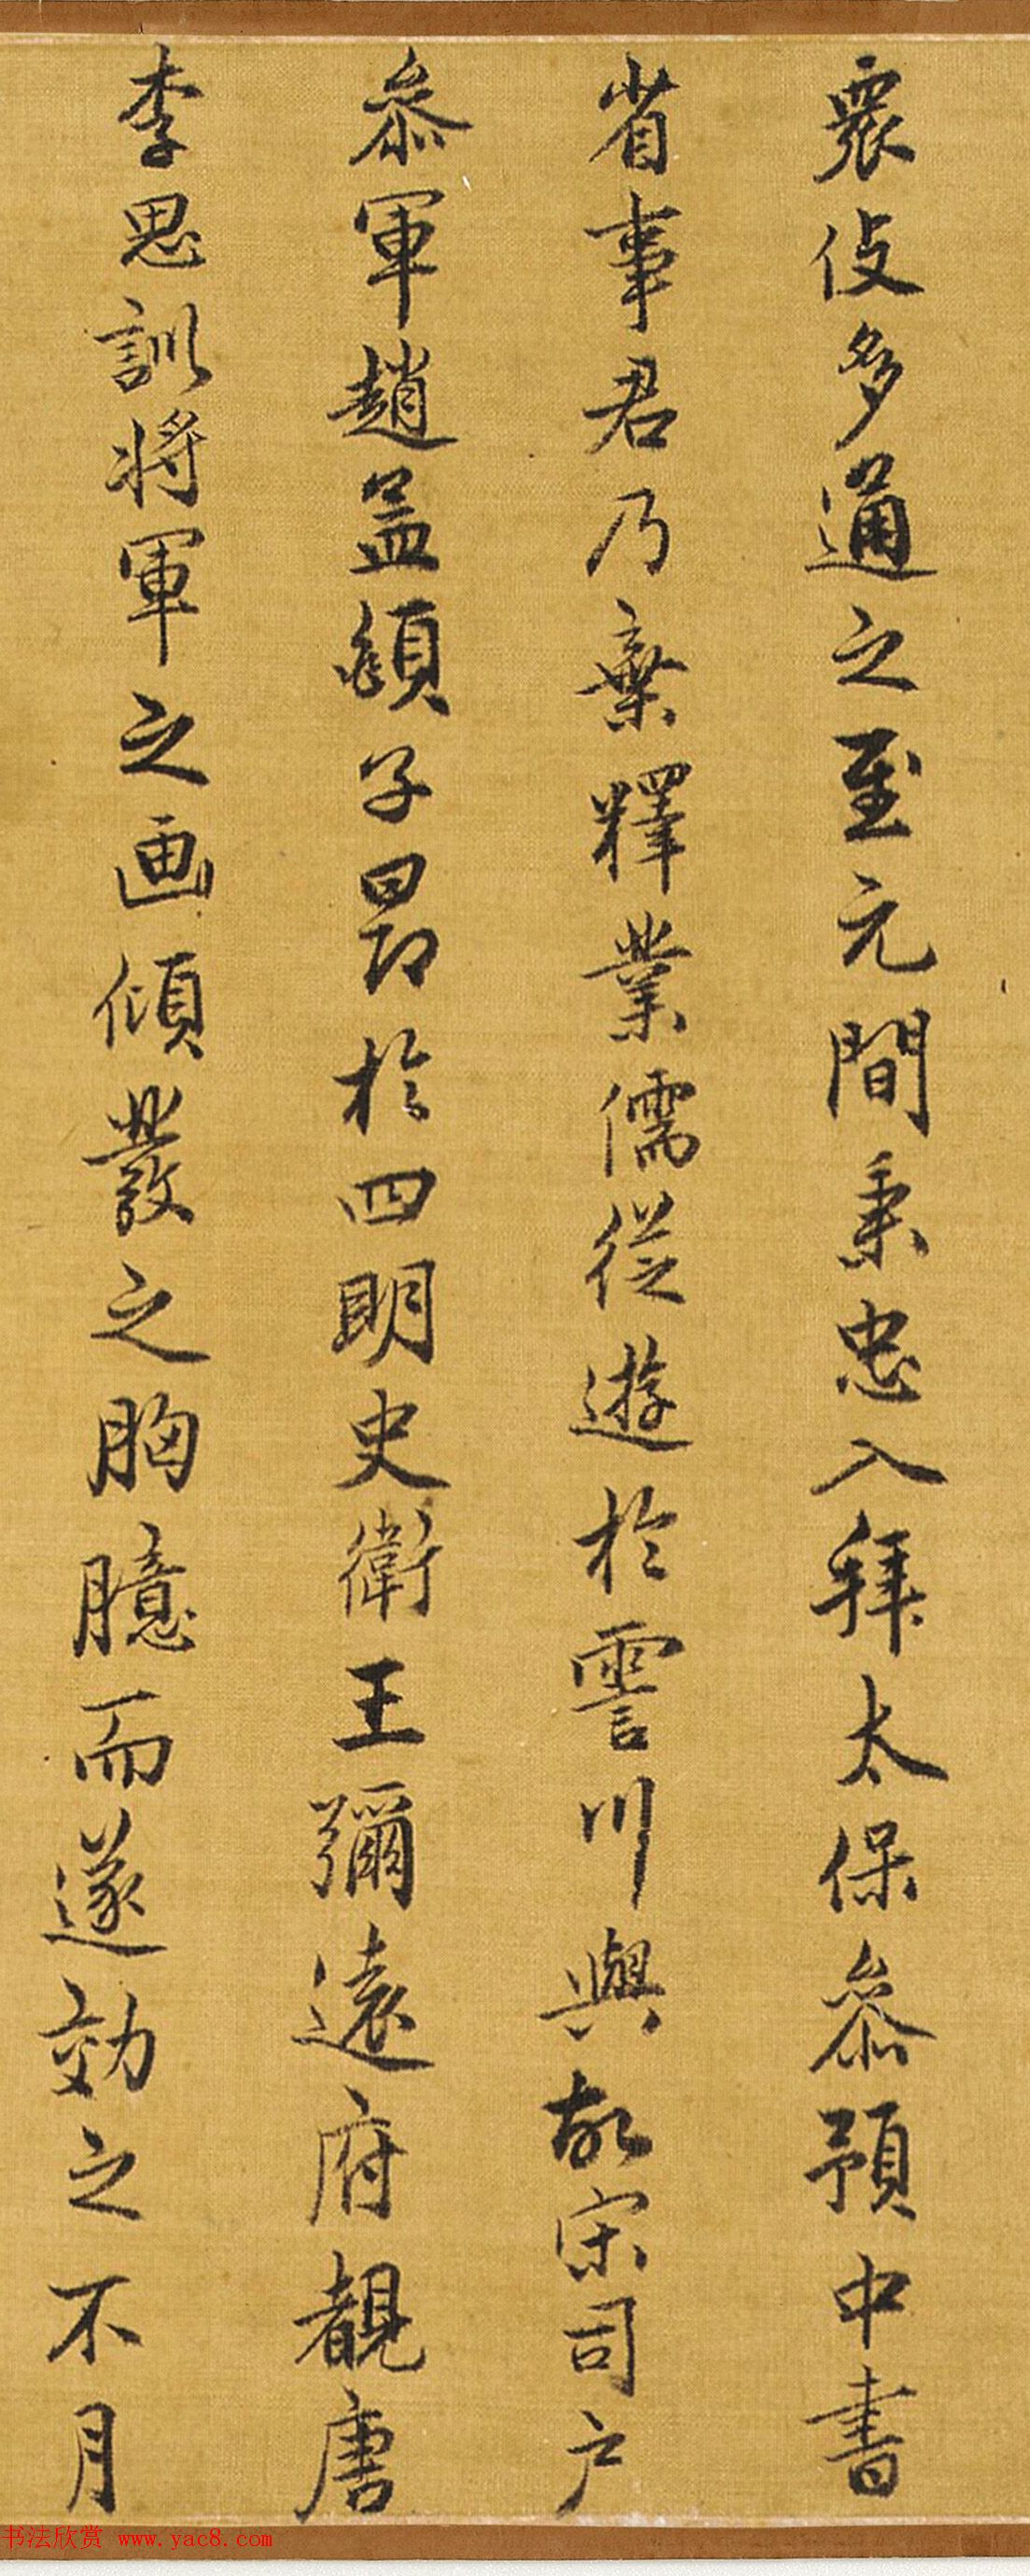 眾伎多通之至元間秉忠入拜太保參預中書
省事君乃棄釋業儒從遊於霅川與故宋司戶
參軍趙孟頫子昂於四明史衛王彌遠府覩唐
李思訓將軍之画傾囊之胸臆而遂効之不月
书法欣赏 www.yac8.com